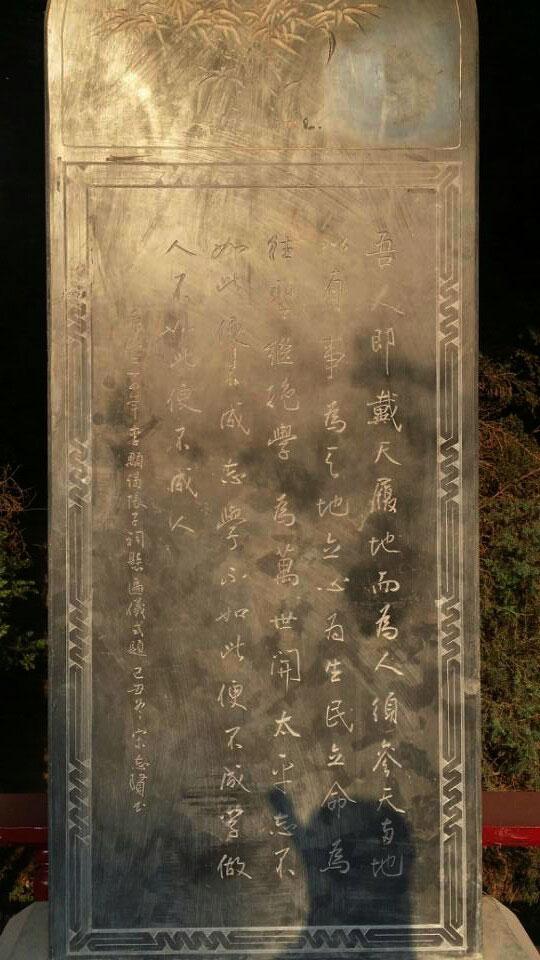 吾人即戴天履地而為人須參天與地
以有事為天地立心為生民立命為
往聖繼絕學為萬世開太平志不
如此便不成志學不如此便不成學做
人不如此便不成人
年李顒儒張子祠懸匾儀式題己丑冬宋志賢書